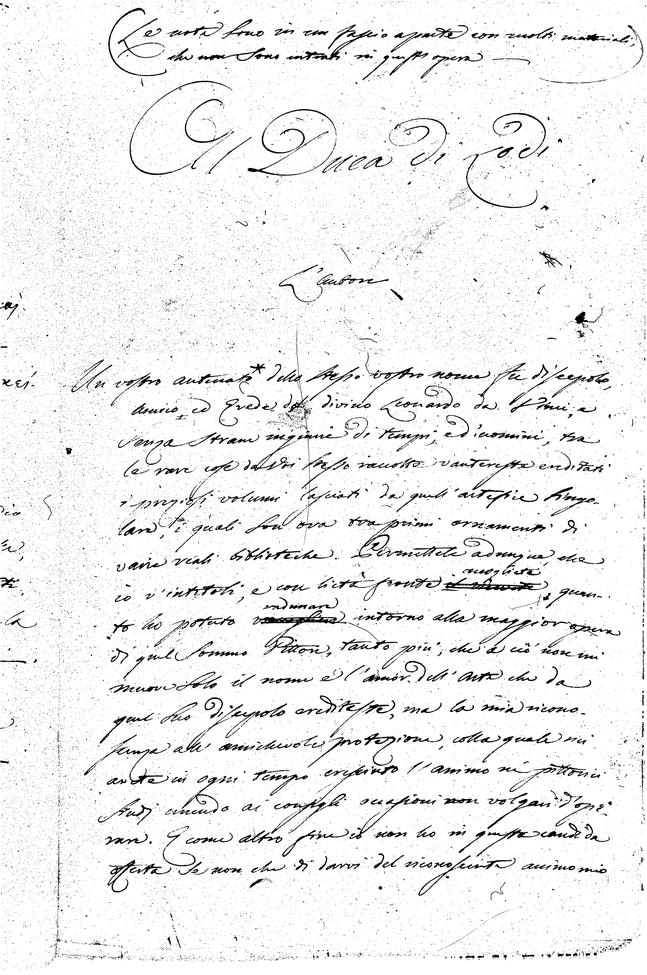 Le note sono in un fascio aparte con molti materiali,
che non sono intrati in quest' opera —
Al Duca di Lodi
L'autore
Un vostro antenato* dello stesso vostro nome fu discepolo,
Amico, ed Erede del divino Leonardo da Vinci, e
senza strane ingiurie di tempi, e d'uomini, tra
le rare cose da voi stesso raccolte vantereste ereditati
i preziosi volumi lasciati da quell'artefice singo-
lare, i quali son ora tra primi ornamenti di
varie reali biblioteche. Permettete adunque, che
io v'intitoli, e con lieta fronte accogliete, quan-
to ho potuto radunare intorno alla maggior opera
di quel sommo Pittore, tanto più, che a ciò non mi
muove solo il nome e l'amor dell'arte che da
quel suo discepolo ereditaste, ma la mia ricono-
scenza all'amichevole protezione, colla quale mi
avete in ogni tempo l'animo ne' pittorici
studj unendo ai consigli occasioni non volgari d'ope-
rare. E come altro fine io non ho in questa candida
offerta se non che di darvi del riconoscente animo mio